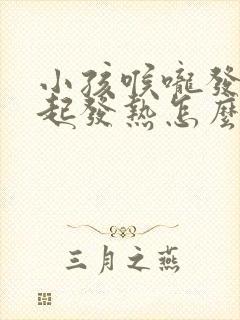 小孩喉嚨發
起發熱怎麼
三月之燕